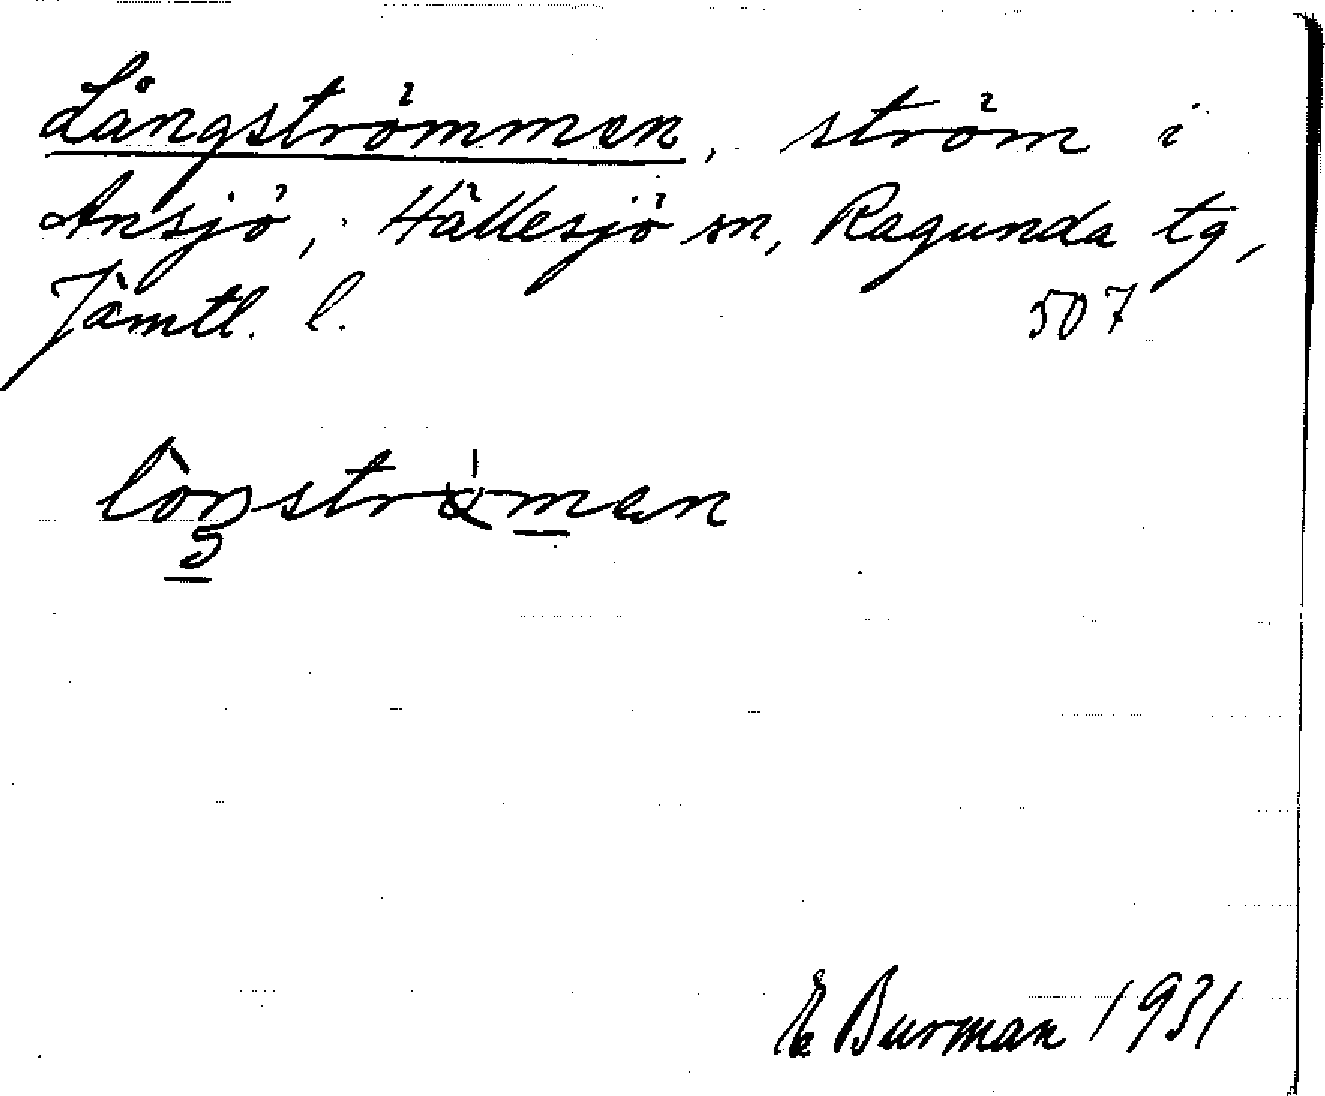 Långströmmen, ström i
Ansjö, Hällesjö sn, Ragunda tg,
Jämtl. l. 507
E Burman 1931